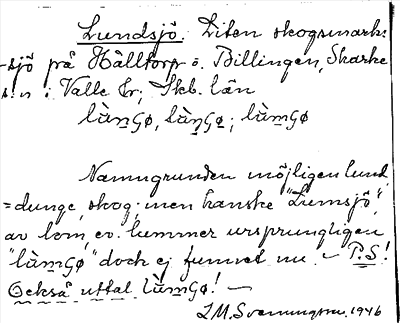 Lundsjö. Liten skogsmark-
-sjö på Hålltorp ö. Billingen, Skarke
s:n i Valle hr; Skb. län
lùnGø, lùnGø; lùmGø
Namngrunden möjligen lund
=dunge, skog; men kanske "Lumsjö",
av lom, ev. lummer ursprungligen
"lùmGø" doch ej funnet nu. – P.S!
Också uttal lùmGø! –
L.M. Svenungsson. 1946